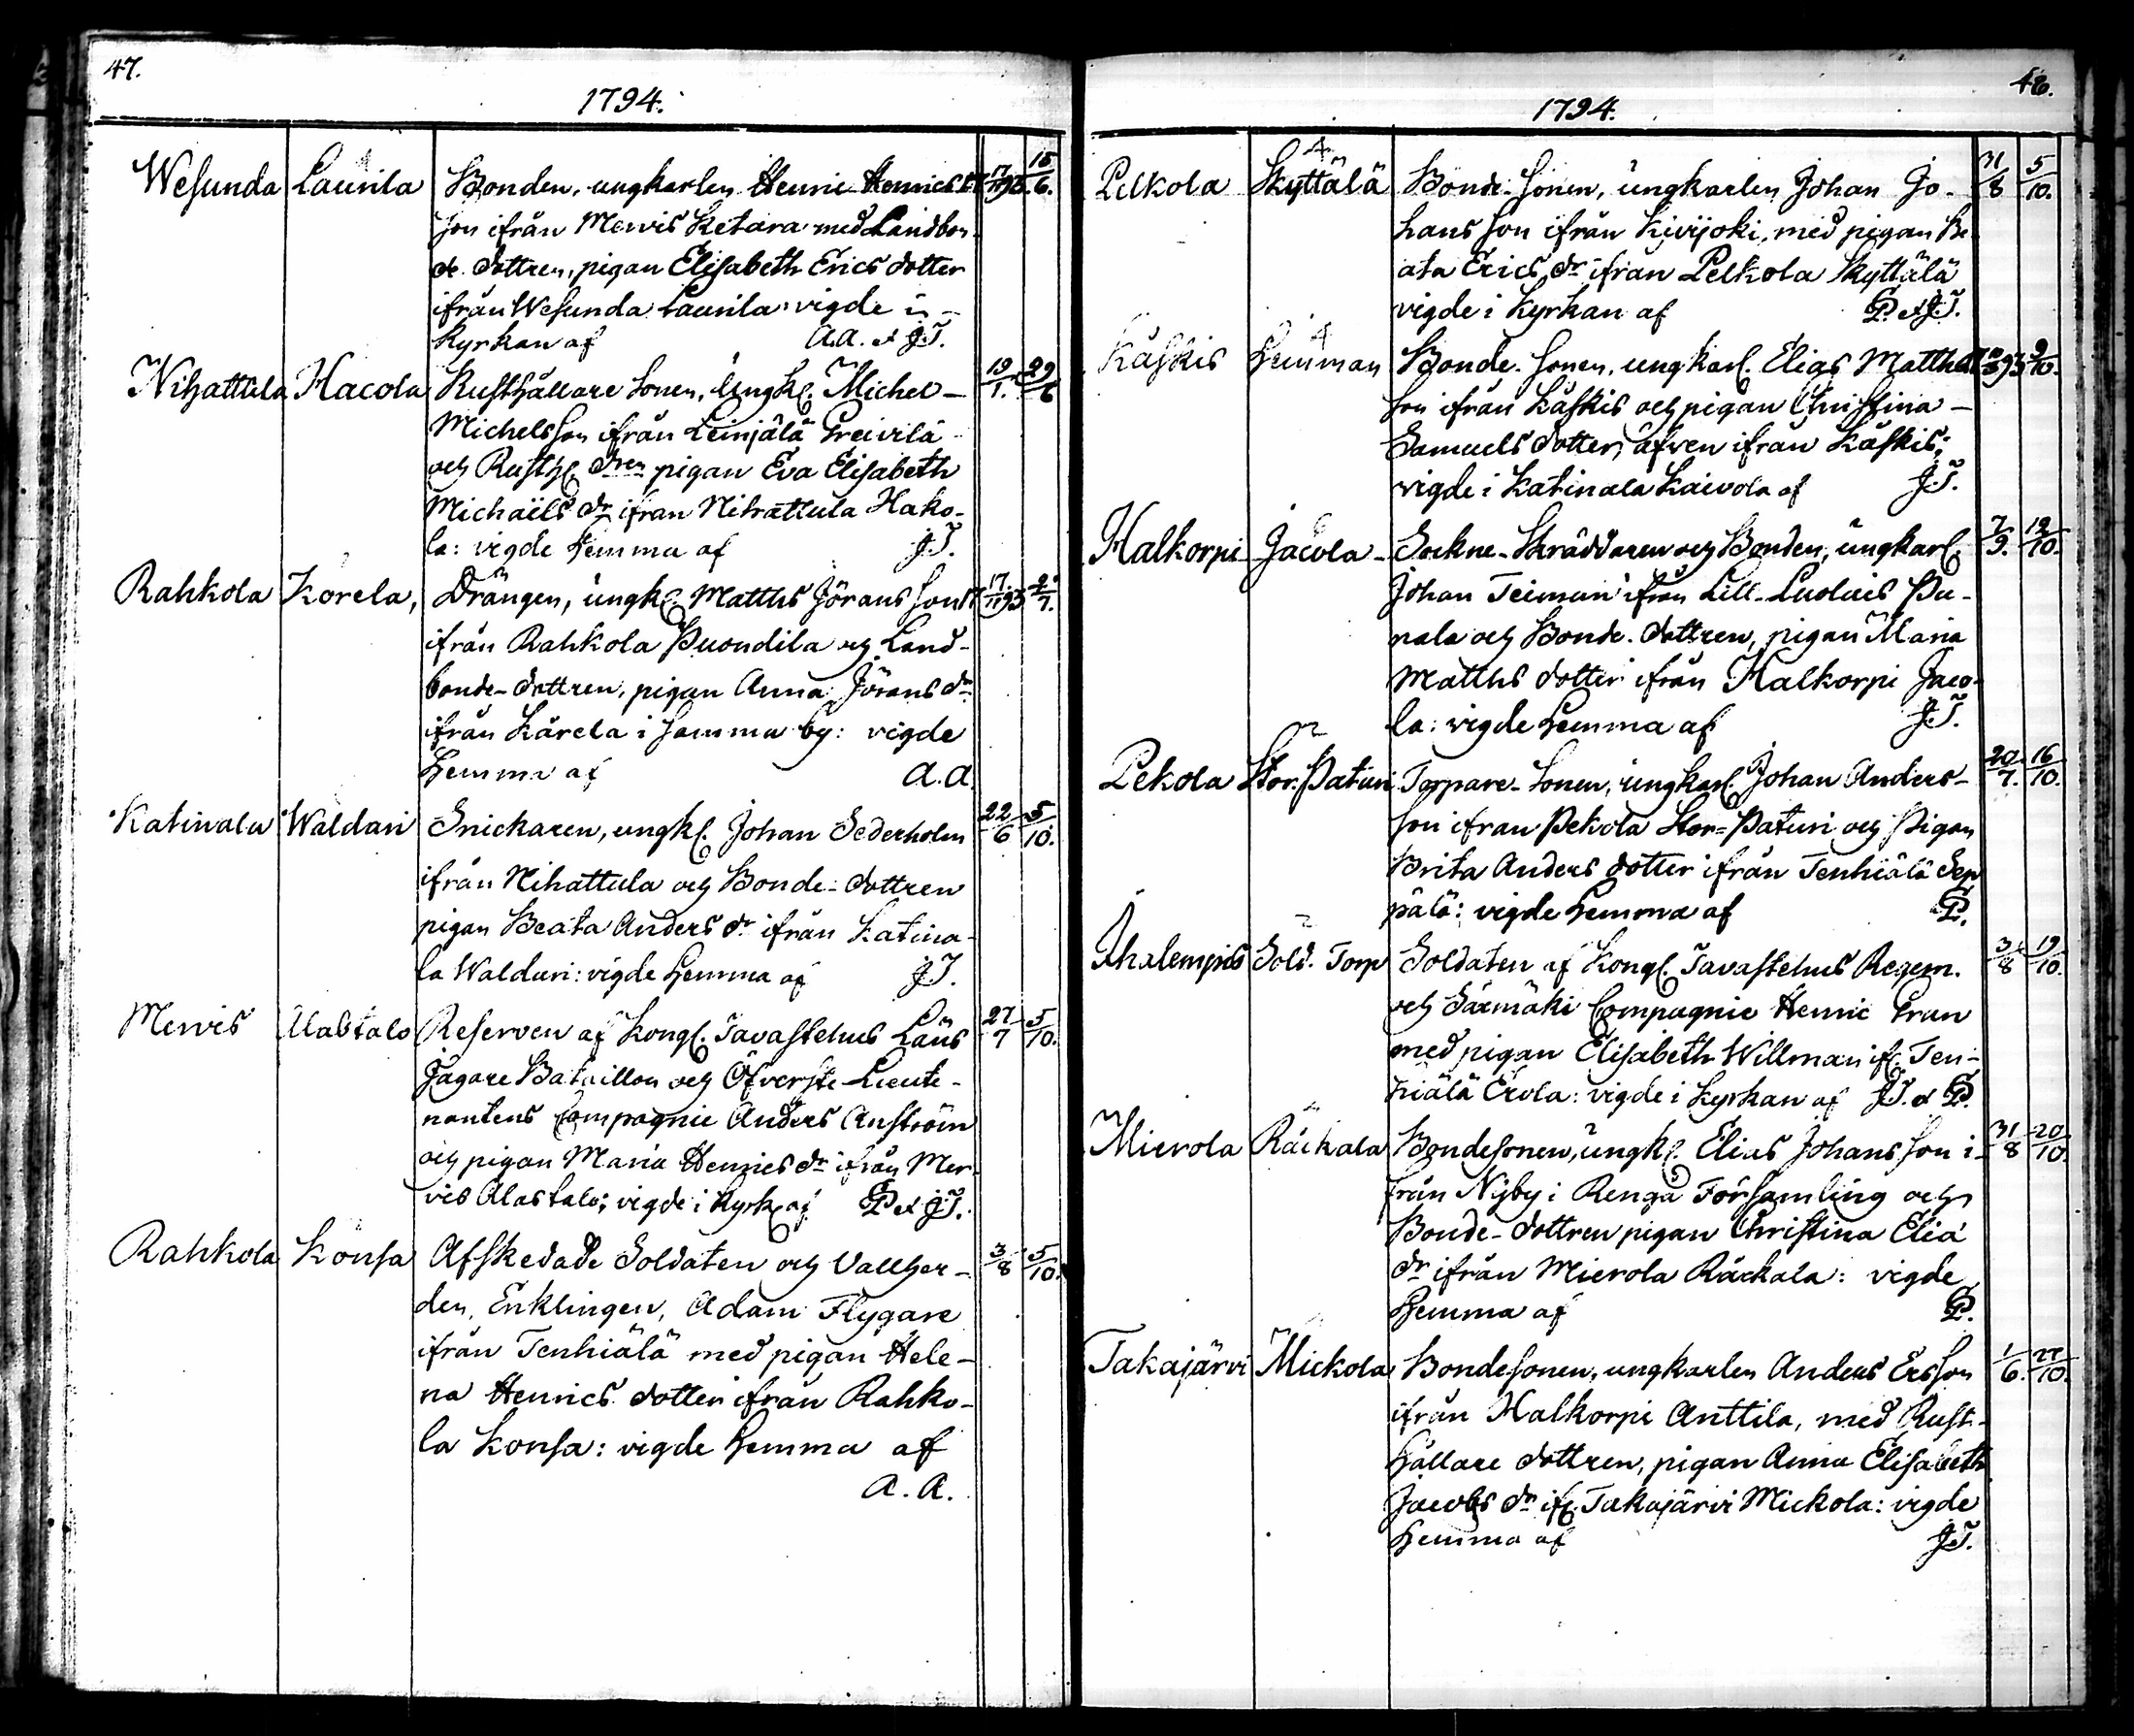 47.
1794.
Wesunda Laurila Bonden, ungkarlen Henric Henrics 17 17/11 93. 15/6.
son ifrån Mervis Ketara med Landbon-
de dottren, pigan Elisabeth Erics dotter
ifrån Wesunda Laurila: vigde i
kyrkan af A.A. et J.T.
Nihattula Hacola Rusthållare Sonen, Ungkl. Michel 19/1. 29/6
Michelsson ifrån Leinjälä Preivilä
och Rusthl. dren pigan Eva Elisabeth
Michaëls dr ifran Nihattula Hako-
la: vigde hemma af J.T.
Rahkola Korela, Drängen, ungkl. Matths Jörans Son 17 17/11 93 2/7.
ifrån Rahkola Puondila och Land-
bonde-dottren, pigan Anna Jörans dr
ifrån Kårela i samma by: vigde
hemma af A.A
Katinala Waldari Snickaren, ungkl. Johan Sederholm 22/6 5/10.
ifrån Nihattula och Bonde-dottren
pigan Beata Anders dr ifrån Katina-
la Waldari: vigde hemma af J.T.
Mervis Alastalo Reserven af Kongl. Tavastehus Läns 27/7 5/10.
Jägare Bataillon och Öfverste Lieute-
nantens Compagnie Anders Anström
och pigan Maria Henrics dr ifrån Mer-
vis Alastalo; vigde i kyrk. af P. et J.T.
Rahkola Konsa Afskedade Soldaten och Vallher- 3/8 5/10.
den, Enklingen, Adam Flygare
ifrån Tenhiälä med pigan Hele-
na Henrics dotter ifrån Rahko-
la Konsa: vigde hemma af
A. A.
48.
1794.
Pelkola Skyttälä Bonde-Sonen, ungkarlen Johan Jo- 31/8 5/10.
hansson ifrån Kivijoki, med pigan Be-
ata Erics dr ifrån Pelkola Skyttälä
vigde i kyrkan af P. et J.T.
Käskis Heinman Bonde-Sonen, ungkarl. Elias Matths 9/10.
son ifrån Käskis och pigan Christina
Samuels dotter, äfven ifrån Käskis;
vigde i Katinala Kaivola af J.T.
Halkorpi Jacola Sockne-Skräddaren och Bonden, ungkarl. 7/9. 12/10.
Johan Teiman ifrån Lill-Luolais Pu-
nala och Bonde-dottren, pigan Maria
Matths dotter ifrån Halkorpi Jaco-
la: vigde hemma af J.T.
Pekola Stor-Paturi Torpare-Sonen, ungkarl. Johan Anders- 20/7. 16/10.
son ifran Pekola Stor-Paturi och Pigan
Brita Anders dotter ifrån Tenhiälä Sep
pälä: vigde hemma af P.
Ihalempis Sold. Torp Soldaten af Kongl. Tavastehus Regem. 3/8 19/10.
och Särmäki Compagnie Henric Gran
med pigan Elisabeth Willman ifr. Ten-
hiälä Erola: vigde i kyrkan af J.T. et P.
Mierola Räckala Bondesonen, ungkl. Elias Johansson i- 31/8 20/10.
från Nyby i Rengo Församling och
Bonde-dottren pigan Christina Elia
dr ifrån Mierola Räckala: vigde
hemma af P.
Takajärvi Mickola Bondesonen, ungkarlen Anders Ersson 1/6. 27/10.
ifrån Halkorpi Anttila, med Rust-
hållare dottren, pigan Anna Elisabeth
Jacobs dr ifr. Takajärvi Mickola: vigde
hemma af J.T.